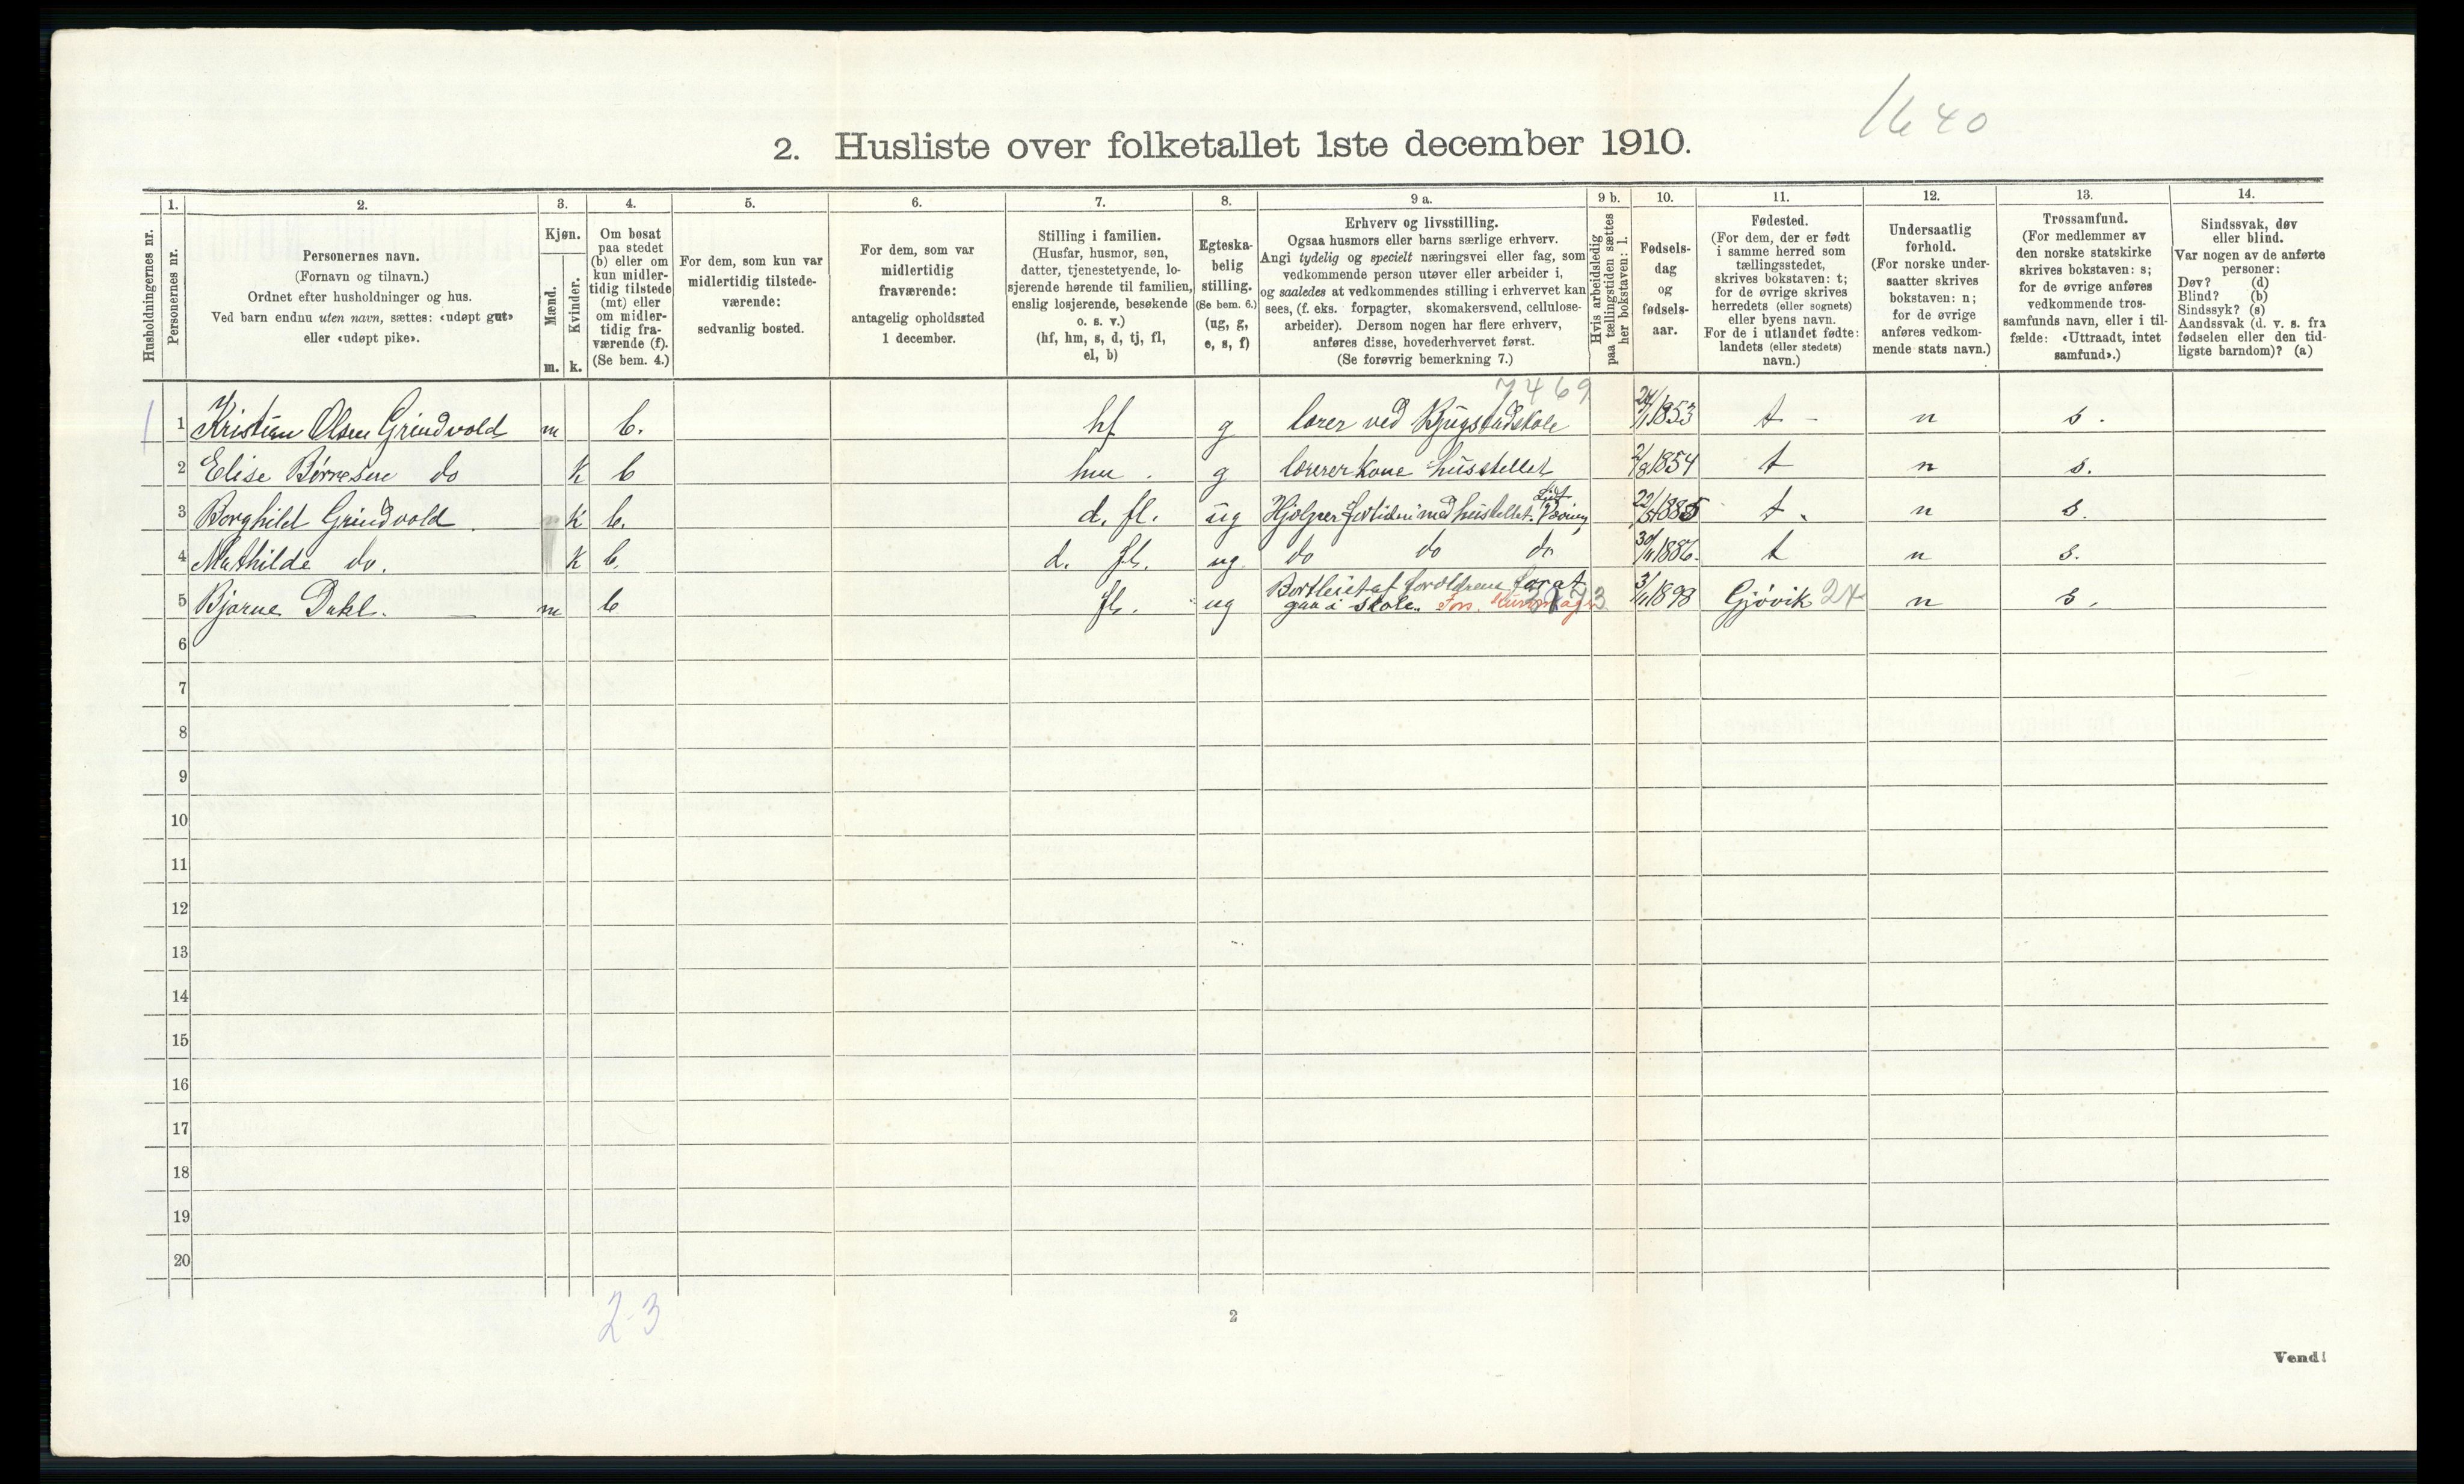 1640
2. Husliste over folketallet 1ste december 1910.
Husholdningernes nr.
1.
Personernes nr.
2.
Personernes navn.
(Fornavn og tilnavn.)
Ordnet efter husholdninger og hus.
Ved barn endnu uten navn, sættes: «udøpt gut»
eller «udøpt pike».
3.
Kjøn.
Mænd.
Kvinder.
m. k.
4.
Om bosat
paa stedet
(b) eller om
kun midler-
tidig tilstede
(mt) eller
om midler-
tidig fra-
værende (f).
(Se bem. 4.)
5.
For dem, som kun var
midlertidig tilstede-
værende:
sedvanlig bosted.
6.
For dem, som var
midlertidig
fraværende:
antagelig opholdssted
1 december.
7.
Stilling i familien.
(Husfar, husmor, søn,
datter, tjenestetyende, lo-
sjerende hørende til familien,
enslig losjerende, besøkende
o. s. v.)
(hf, hm, s, d, tj, fl,
el, b)
8.
Egteska-
belig
stilling.
(Se bem. 6.)
(ug, g,
e, s, f)
9 a.
Erhverv og livsstilling.
Ogsaa husmors eller barns særlige erhverv.
Angi tydelig og specielt næringsvei eller fag, som
vedkommende person utøver eller arbeider i,
og saaledes at vedkommendes stilling i erhvervet kan
sees, (f. eks. forpagter, skomakersvend, cellulose-
arbeider). Dersom nogen har flere erhverv,
anføres disse, hovederhvervet først.
(Se forøvrig bemerkning 7.)
9 b.
Hvis arbeidsledig
paa tællingstiden sættes
her bokstaven: l.
10.
Fødsels-
dag
og
fødsels-
aar.
11.
Fødested.
(For dem, der er født
i samme herred som
tællingsstedet,
skrives bokstaven: t;
for de øvrige skrives
herredets (eller sognets)
eller byens navn.
For de i utlandet fødte:
landets (eller stedets)
navn.)
12.
Undersaatlig
forhold.
(For norske under-
saatter skrives
bokstaven: n;
for de øvrige
anføres vedkom-
mende stats navn.)
13.
Trossamfund.
(For medlemmer av
den norske statskirke
skrives bokstaven: s;
for de øvrige anføres
vedkommende tros-
samfunds navn, eller i til-
fælde: «Uttraadt, intet
samfund».)
14.
Sindssvak, døv
eller blind.
Var nogen av de anførte
personer:
Døv? (d)
Blind? (b)
Sindssyk? (s)
Aandssvak (d. v. s. fra
fødselen eller den tid-
ligste barndom)? (a)
7469
1 1 Kristian Olsen Grindvold m b. hf g lærer ved Bjugstadskole 24/1 1853 t - n s.
2 Elise Børresen do K b hm. g lærerkone husstellet 2/8 1854 t n s.
3 Borghild Grindvold K b. d. fl. ug Hjælper for tiden med husstellet. 1885 t. n s.
4 Mathilde do. K b. d. fl. ug. do do do 30/11 1886. t n s.
5 Bjarne Dahl. m b fl. ug Bortleiet af forældrene for at
gaa i skole. Fors. 3/11 1898 Gjøvik 24 n s.
6
7
8
9
10
11
12
13
14
15
16
17
18
19
20
2-3
2
Vend!